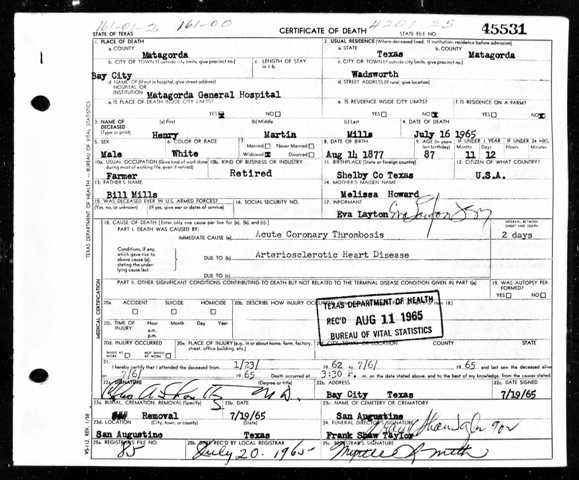 161-01-2 161-00 4201 25
STATE OF TEXAS CERTIFICATE OF DEATH STATE FILE NO. 45531
1. PLACE OF DEATH 2. USUAL RESIDENCE (Where deceased lived. If institution: residence before admission)
a. COUNTY a. STATE b. COUNTY
Matagorda Texas Matagorda
b. CITY OR TOWN (If outside city limits, give precinct no.) c. LENGTH OF STAY c. CITY OR TOWN (If outside city limits, give precinct no.)
Bay City Wadsworth
d. NAME OF (If not in hospital, give street address) HOSPITAL OR INSTITUTION d. STREET ADDRESS (If rural, give location)
Matagorda General Hospital
e. IS PLACE OF DEATH INSIDE CITY LIMITS? e. IS RESIDENCE INSIDE CITY LIMITS? f. IS RESIDENCE ON A FARM?
YES NO YES NO YES NO
3. NAME OF DECEASED (a) First (b) Middle (c) Last 4. DATE OF DEATH
Henry Martin Mills July 16 1965
5. SEX 6. COLOR OR RACE 7. Married Never Married 8. DATE OF BIRTH 9. AGE IF UNDER 1 YEAR IF UNDER 24 HRS.
Male White Widowed Divorced Aug 14 1877 87 11 12
10a. USUAL OCCUPATION 10b. KIND OF BUSINESS OR INDUSTRY 11. BIRTHPLACE (State or foreign country) 12. CITIZEN OF WHAT COUNTRY?
Farmer Retired Shelby Co Texas U.S.A.
13. FATHER'S NAME 14. MOTHER'S MAIDEN NAME
Bill Mills Melissa Howard
15. WAS DECEASED EVER IN U.S. ARMED FORCES? 16. SOCIAL SECURITY NO. 17. INFORMANT
(Yes, no, or unknown) (If yes, give war or dates of service) Eva Layton
18. CAUSE OF DEATH (Enter only one cause per line for (a), (b), and (c).) INTERVAL BETWEEN ONSET AND DEATH
PART I. DEATH WAS CAUSED BY:
IMMEDIATE CAUSE (a) Acute Coronary Thrombosis 2 days
Conditions, if any, which gave rise to above cause (a) stating the underlying cause last.
DUE TO (b) Arteriosclerotic Heart Disease
DUE TO (c)
PART II. OTHER SIGNIFICANT CONDITIONS CONTRIBUTING TO DEATH BUT NOT RELATED TO THE TERMINAL DISEASE CONDITION GIVEN IN PART I (a) 19. WAS AUTOPSY PERFORMED?
YES NO
20a. ACCIDENT SUICIDE HOMICIDE 20b. DESCRIBE HOW INJURY
TEXAS DEPARTMENT OF HEALTH
REC'D AUG 11 1965
BUREAU OF VITAL STATISTICS
20c. TIME OF INJURY Hour Month Day Year
a.m.
p.m.
20d. INJURY OCCURRED 20e. PLACE OF INJURY (e.g. in or about home, farm, factory, street, office building, etc.)
WHILE AT WORK NOT WHILE AT WORK
21. I hereby certify that I attended the deceased from 1/23/ 62 7/6/ 65 and last saw the deceased alive
7/6/ 65 Death occurred at 3:30 P. m. on the date stated above, and to the best of my knowledge, from the causes stated.
22a. SIGNATURE (Degree or title) 22b. ADDRESS 22c. DATE SIGNED
M.D. Bay City Texas 7/19/65
23a. BURIAL, CREMATION, REMOVAL (Specify) 23b. DATE 23c. NAME OF CEMETERY OR CREMATORY
Removal 7/19/65 San Augustine
23d. LOCATION (City, town, or county) (State) 24. FUNERAL DIRECTOR'S SIGNATURE
San Augustine Texas Frank Shaw Taylor
25a. REGISTRAR'S FILE NO. 25b. DATE REC'D BY LOCAL REGISTRAR 25c. REGISTRAR'S SIGNATURE
85 July 20, 1965 Smith
TEXAS DEPARTMENT OF HEALTH—BUREAU OF VITAL STATISTICS
MEDICAL CERTIFICATION
VS-112 REV. 1/58